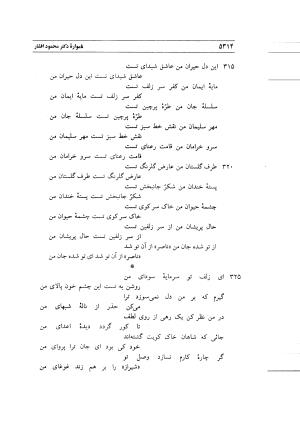 ۵۳۱۴ نامواره دکتر محمود افشار
۳۱۵ این دل حیران من عاشق شیدای تست
عاشق شیدای تست این دل حیران من
مایه ایمان من کفر سر زلف تست
کفر سر زلف تست مایه ایمان من
سلسله جان من طره پرچین تست
طره پرچین تست سلسله جان من
مهر سلیمان من نقش خط سبز تست
نقش خط سبز تست مهر سلیمان من
سرو خرامان من قامت رعنای تست
قامت رعنای تست سرو خرامان من
۳۲۰ طرف گلستان من عارض گلرنگ تست
عارض گلرنگ تست طرف گلستان من
پسته خندان من شکر جانبخش تست
شکر جانبخش تست پسته خندان من
چشمه حیوان من خاک سر کوی تست
خاک سر کوی تست چشمه حیوان من
حال پریشان من از سر زلفین تست
از سر زلفین تست حال پریشان من
از تو شده جان من «ناصر» از آن تو شد
«ناصر» از آن تو شد ای تو شده جان من
*
۳۲۵ ای زلف تو سرمایه سودای من
روشن به تست این چشم خون پالای من
گیرم که بر من دل نمی‌سوزد ترا
می‌کن حذر از ناله شبهای من
در من نظر کن یک رهی از روی لطف
تا کور گردد دیده اعدای من
جائی که شاهان خاک کویت گشته‌اند
خود کی بود ای جان ترا پروای من
گر چاره کارم نسازد وصل تو
«شیراز» را بر هم زند غوغای من